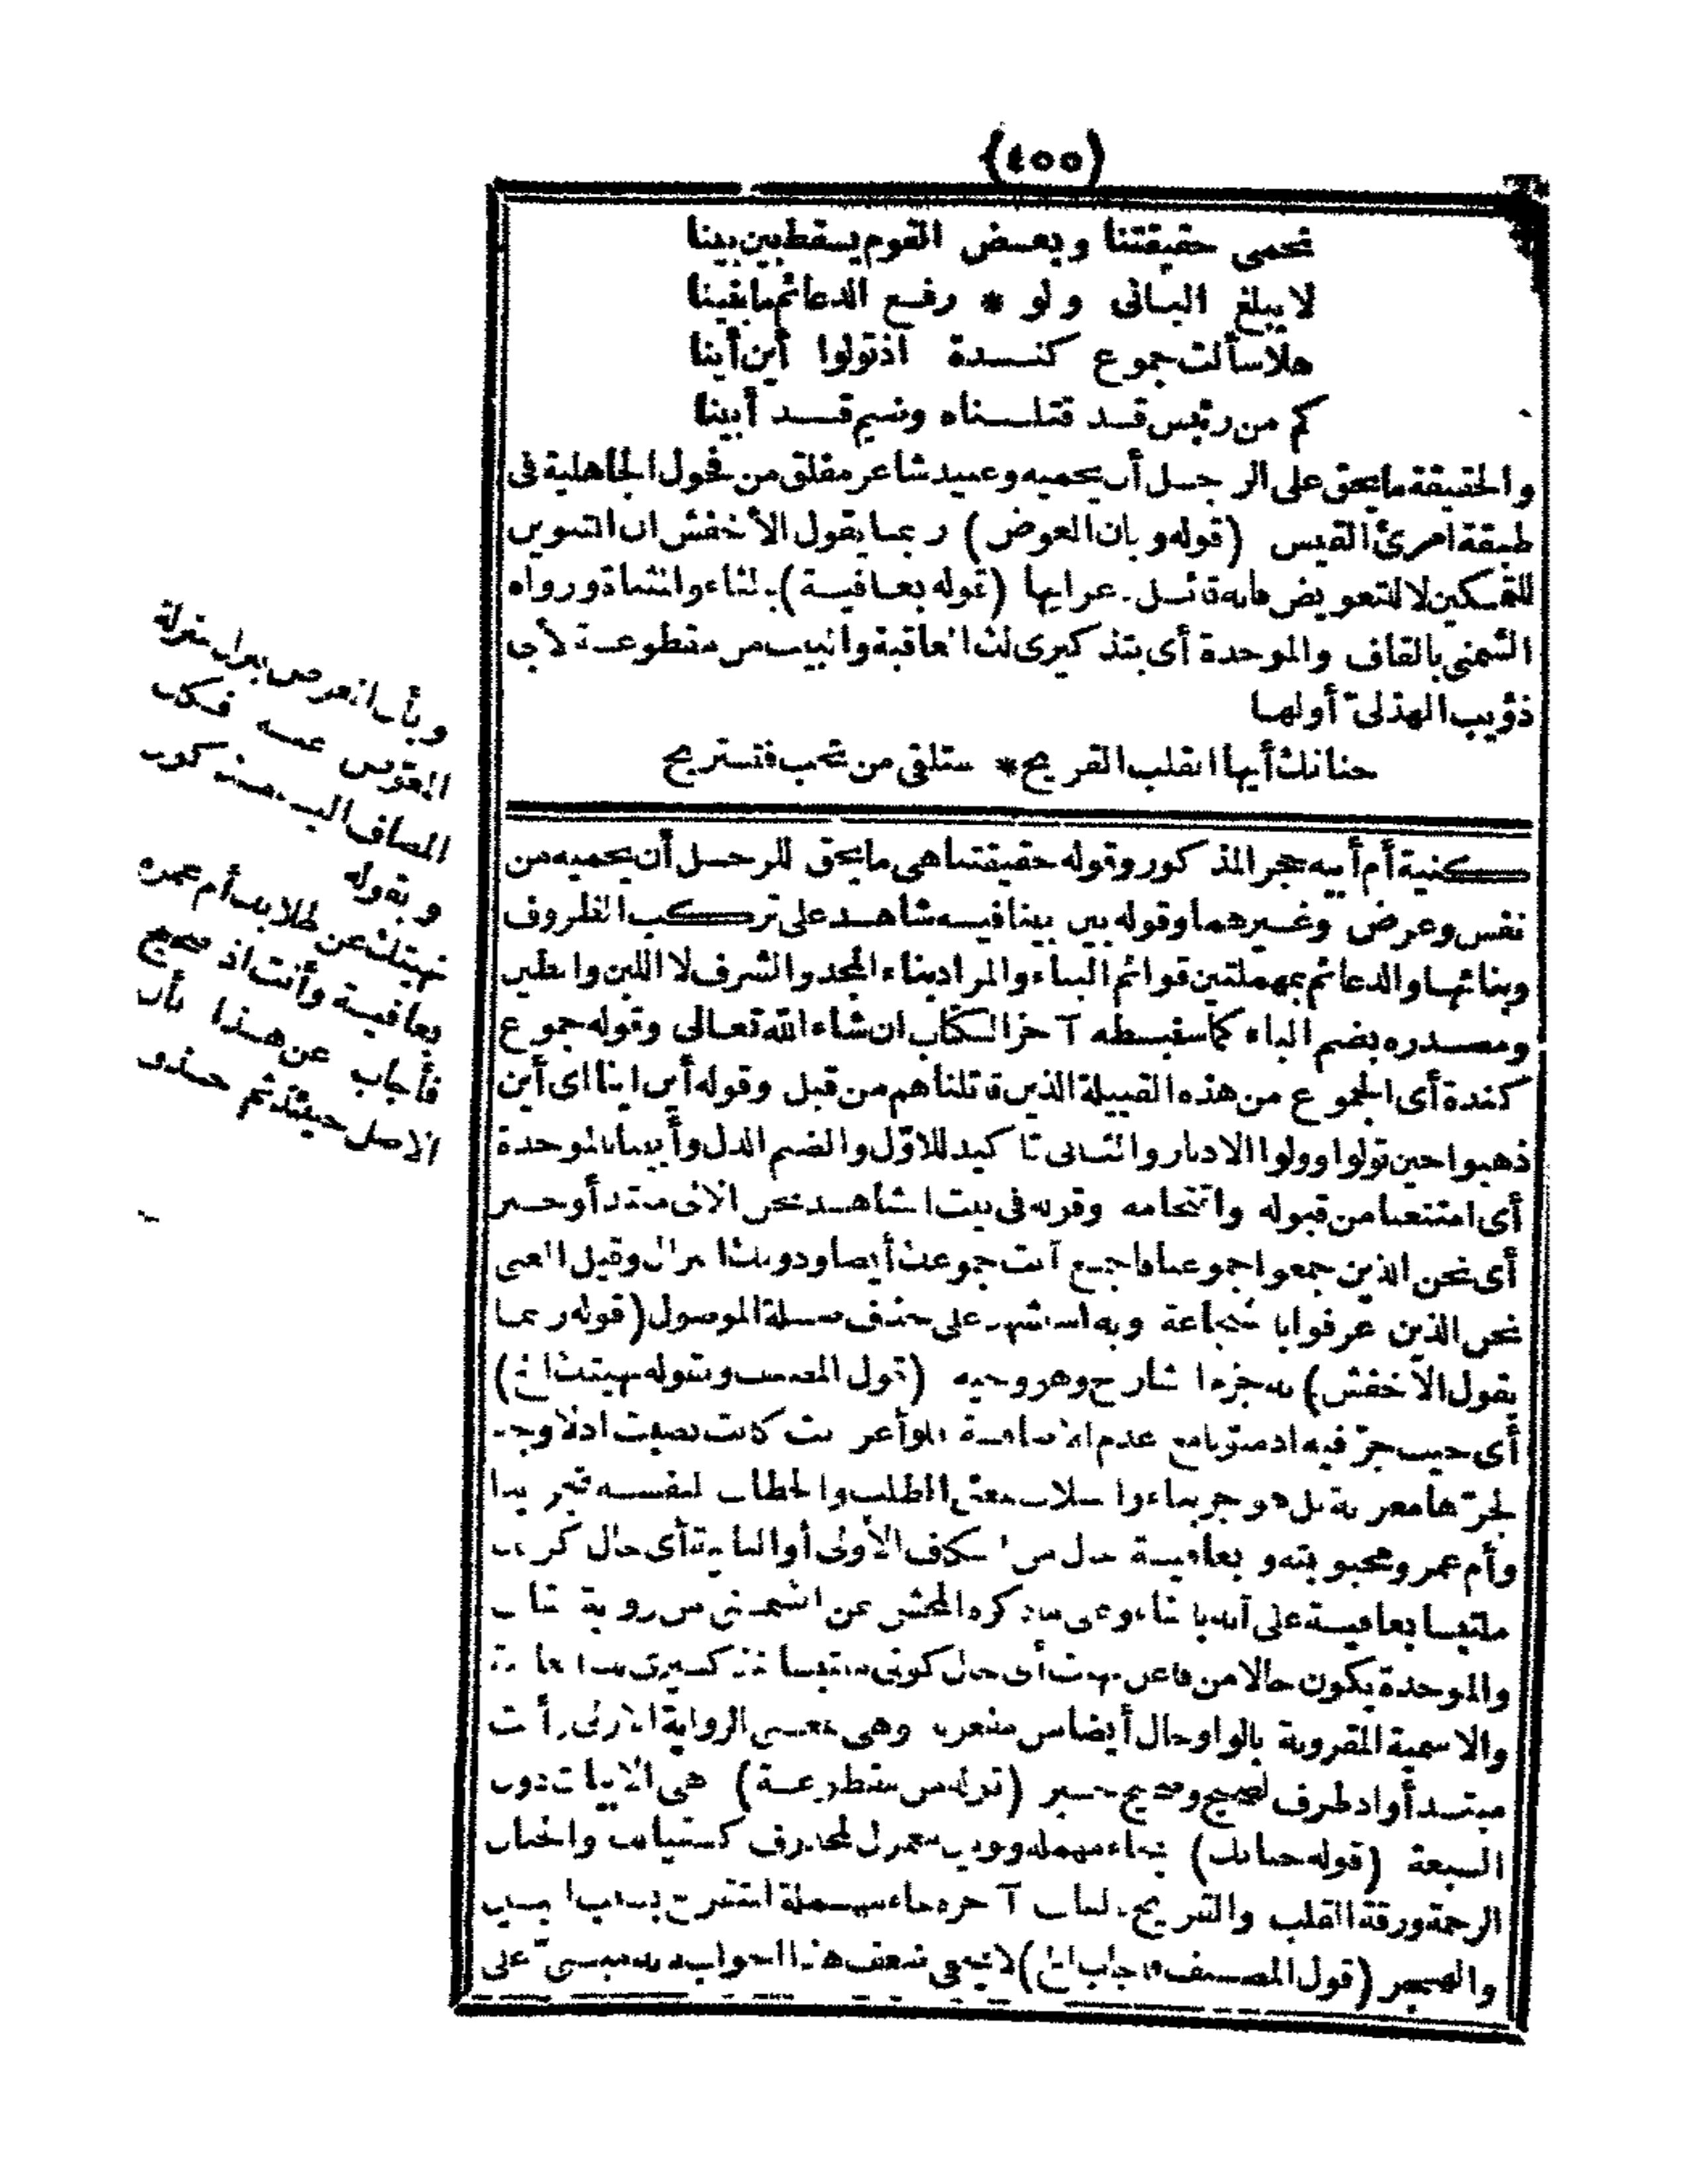 (٤٥٥)
نحمى حقيقتنا وبعض القوم يسقط بين بينا
لا يبلغ البانى ولو * رفع الدعائم ما بقينا
هلا سألت جموع كندة اذ تولوا أين أينا
كم من رئيس قد قتلناه وضيم قد أبينا
والحقيقة ما يحق على الرجل أن يحميه وعبيد شاعر مفلق من فحول الجاهلية فى
طبقة امرئ القيس (قوله وبان العوض) ربما يقول الأخفش ان التنوين
للتمكين لا للتعويض فانه قائل باعرابها (قوله بعافية) بالفاء والمثناة ورواه
الشمنى بالقاف والموحدة أى بتذكيرى لك العاقبة والبيت من مقطوعة لأبى
ذؤيب الهذلى أولها
حنانك أيها القلب القريح * ستلقى من تحب فتستريح
كنية أم أبيه حجر المذكور وقوله حقيقتنا هى ما يحق للرجل أن يحميه من
نفس وعرض وغيرهما وقوله بين بينا فيه شاهد على تركب الظروف
وبنائها والدعائم بمهملتين قوائم البناء والمراد بناء المجد والشرف لا اللبن والطين
ومصدره بضم الباء كما سنبسطه آخر الكتاب ان شاء الله تعالى وقوله جموع
كندة أى الجموع من هذه القبيلة الذين قاتلناهم من قبل وقوله أين اينا اى أين
ذهبوا حين تولوا وولوا الادبار والثانى تاكيد للاوّل والضيم الذل وأبينا بالموحدة
أى امتنعنا من قبوله واقتحامه وقوله فى بيت الشاهد نحن الالى مبتدأ وخبر
أى نحن الذين جمعوا جموعنا فاجمع أنت جموعك أيضا ودونك النزال وقيل المعنى
نحن الذين عرفوا بالشجاعة وبه استشهد على حذف صلة الموصول (قوله ربما
يقول الأخفش) به جزم الشارح وهو وجيه (قول المصنف وبقوله نهيتك الخ)
أى حيث جرّ فيه اذ منونا مع عدم الاضافة فلو أعربت كانت نصبت اذ لا وجه
لجرّها معربة بل هو جر بناء والطلاب بمعنى الطلب والخطاب لنفسه تجريدا
وأم عمرو محبوبته وبعافية حال من الكاف الأولى أو الثانية أى حال كونك
ملتبسا بعافية على أنه بالفاء وعلى ما ذكره المحشى عن الشمنى من رواية القاف
والموحدة يكون حالا من فاعل نهيت أى حال كونى ملتبسا بتذكيرى لك العاقبة
والاسمية المقرونة بالواو حال أيضا من مفعوله وهى بمعنى الرواية الاولى وأنت
مبتدأ واذ ظرف لصحيح وصحيح خبر (قوله من مقطوعة) هى الابيات دون
السبعة (قوله حنانك) بحاء مهملة ونونين معمول لمحذوف كحنانيك والحنان
الرحمة ورقة القلب والقريح بالقاف آخره حاء مهملة
والصبر (قول المصنف فأجاب الخ) لا يخفى ضعف هذا الجواب فانه مبنىّ على
وبأن العوض ينزل منزلة
المعوّض عنه فكأن
المضاف اليه مذكور
وبقوله
نهيتك عن طلابك أم عمرو
بعافية وأنت اذ صحيح
فأجاب عن هذا بأن
الاصل حينئذ ثم حذف